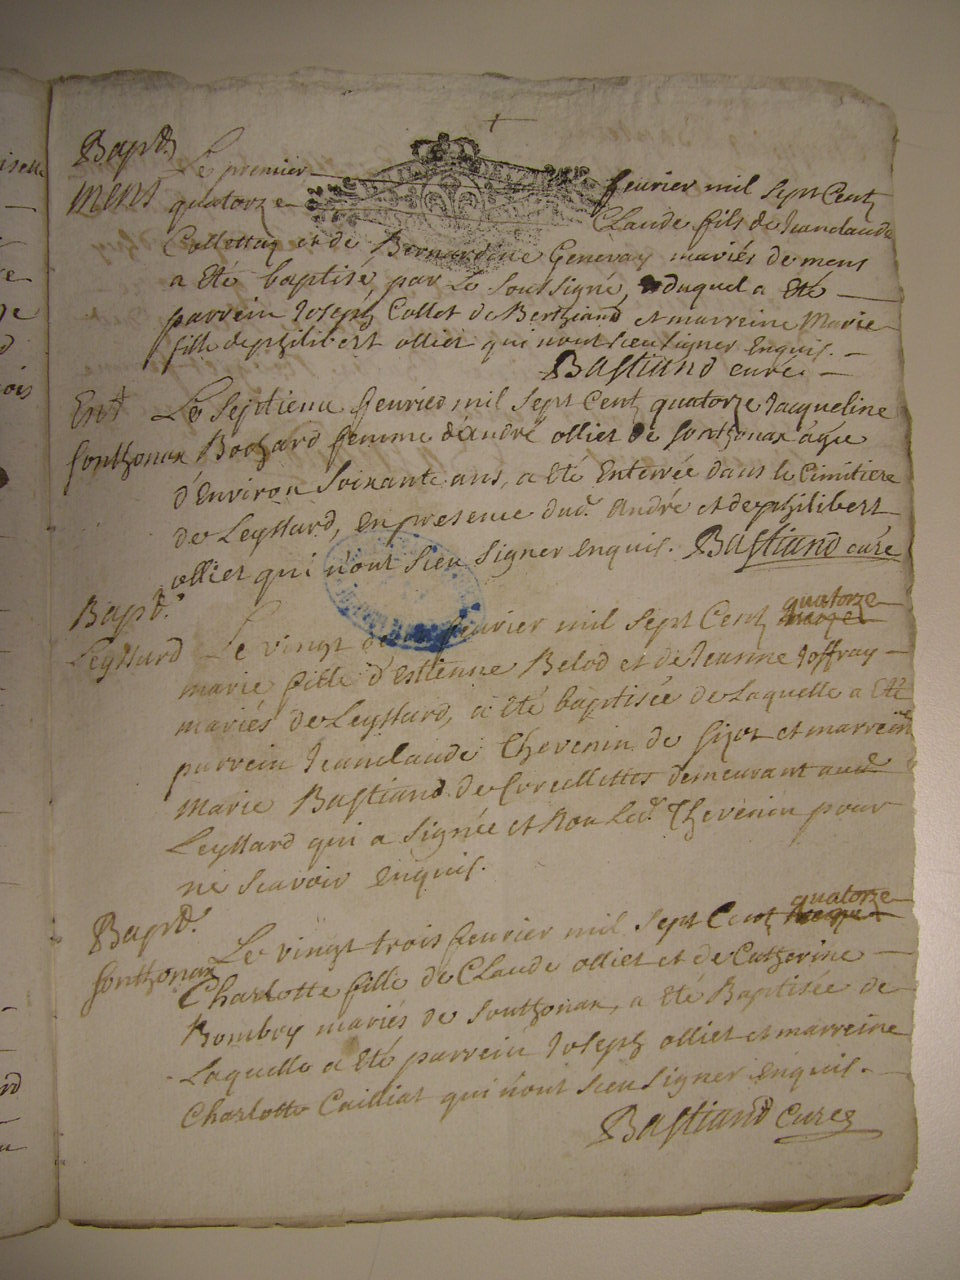 Bapt.
Mens
Le premier fevrier mil sept Cent
quatorze Claude fils de Jeanclaude
Collettaz et de Bernardine Genevay mariés de mens
a Eté baptisé par Le Soussigné, duquel a Eté
parrein Joseph Collet de Berthiand et marreine Marie
fille de philibert ollier qui n'ont sceu signer Enquis.
Bastiand curé
Ent.
sonthonax
Le Septieme fevrier mil Sept Cent quatorze Jacqueline
Bochard femme d'André ollier de sonthonax âgée
d'Environ Soixante ans, a Eté Enterrée dans le Cimitiere
de Leyssard, en presence dud. André et de philibert
ollier qui n'ont sceu signer enquis. Bastiand curé
Bapt.
Leyssard
quatorze
Le vingt fevrier mil sept Cent
marie fille d'Estienne Belod et de Jeanne Joffray
mariés de Leyssard, a été baptisée de Laquelle a Eté
parrein Jeanclaude Chevenin de et marreine
Marie Bastiand de demeurant aud.
Leyssard qui a signée et Non Led. Thevenin pour
ne scavoir enquis.
Bapt.
sonthonax
quatorze
Le vingt trois fevrier mil sept Cent
Charlotte fille de Claude ollier et de Catherine
Bomboy mariés de Sonthonax, a été Baptisée de
Laquelle a Eté parrein Joseph ollier et marreine
Charlotte Cailliat qui n'ont sceu signer enquis.
Bastiand Curé